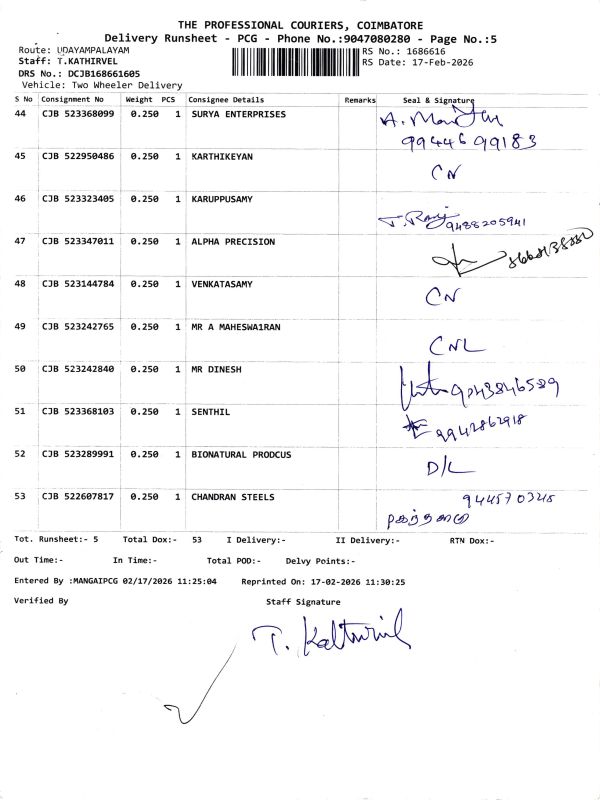 THE PROFESSIONAL COURIERS, COIMBATORE
Delivery Runsheet - PCG - Phone No.:9047080280 - Page No.:5
Route: UDAYAMPALAYAM
Staff: T.KATHIRVEL
DRS No.: DCJB168661605
Vehicle: Two Wheeler Delivery
RS No.: 1686616
RS Date: 17-Feb-2026
S No Consignment No Weight PCS Consignee Details Remarks Seal & Signature
44 CJB 523368099 0.250 1 SURYA ENTERPRISES
9944699183
45 CJB 522950486 0.250 1 KARTHIKEYAN CN
46 CJB 523323405 0.250 1 KARUPPUSAMY 9488205941
47 CJB 523347011 0.250 1 ALPHA PRECISION
48 CJB 523144784 0.250 1 VENKATASAMY CN
49 CJB 523242765 0.250 1 MR A MAHESWA1RAN CNL
50 CJB 523242840 0.250 1 MR DINESH 9043846589
51 CJB 523368103 0.250 1 SENTHIL 9942862918
52 CJB 523289991 0.250 1 BIONATURAL PRODCUS D/L
53 CJB 522607817 0.250 1 CHANDRAN STEELS
Tot. Runsheet:- 5 Total Dox:- 53 I Delivery:- II Delivery:- RTN Dox:-
Out Time:- In Time:- Total POD:- Delvy Points:-
Entered By :MANGAIPCG 02/17/2026 11:25:04 Reprinted On: 17-02-2026 11:30:25
Verified By Staff Signature